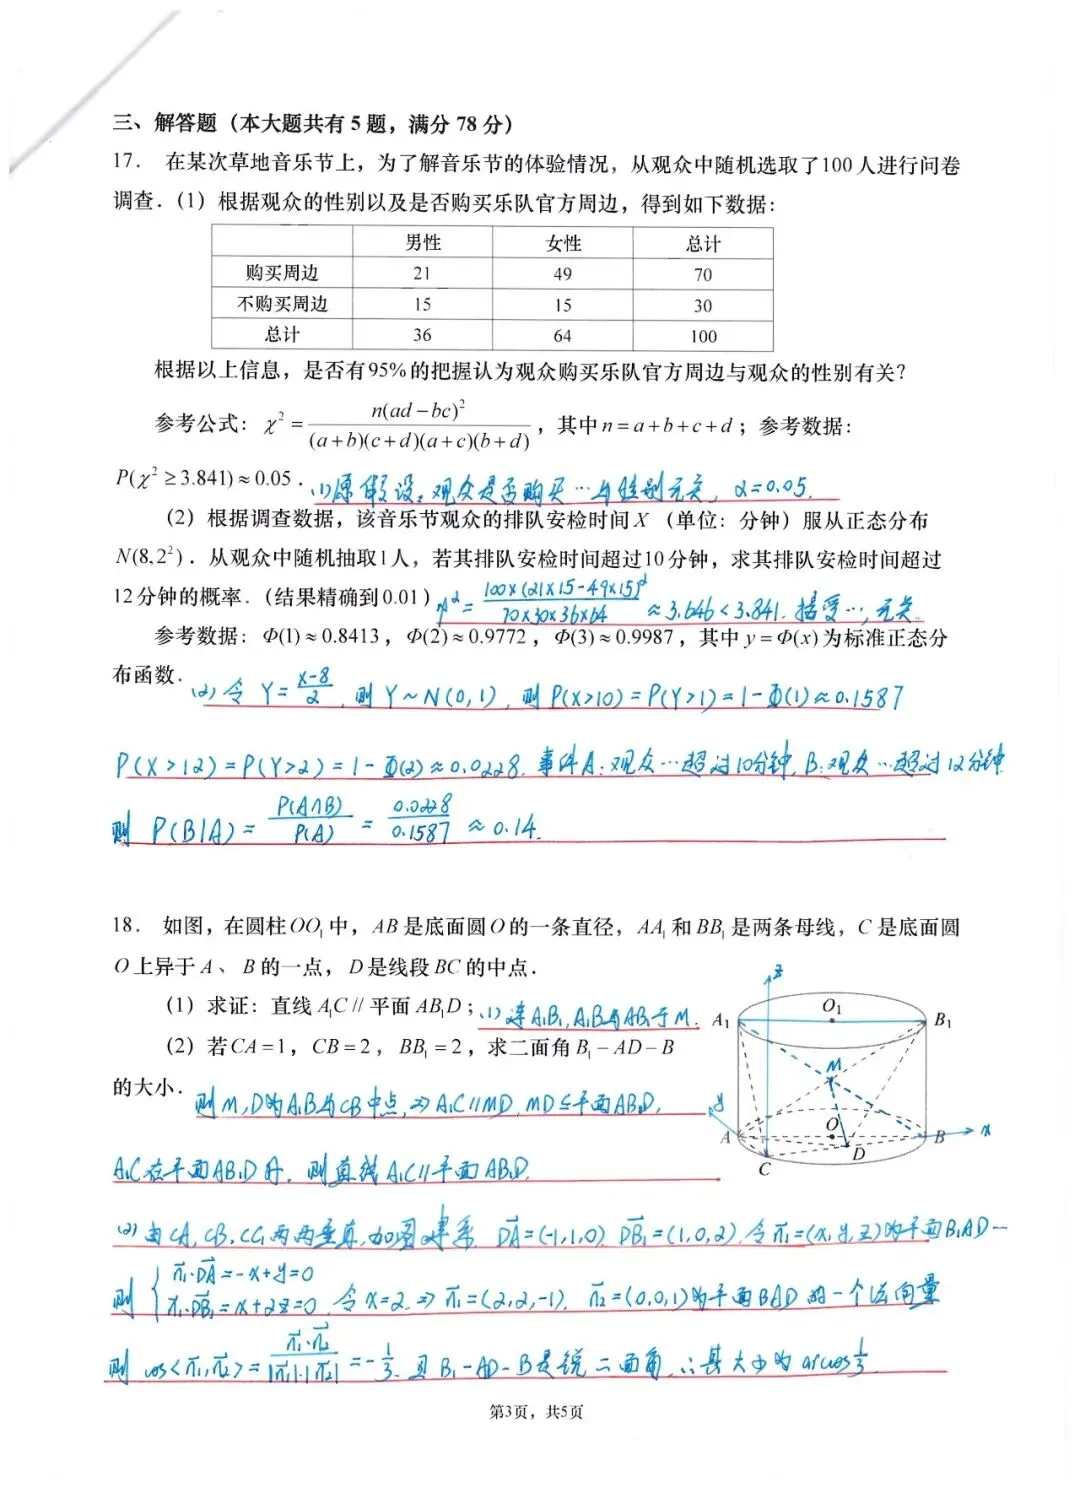 三、解答题（本大题共有 5 题，满分 78 分）
17． 在某次草地音乐节上，为了解音乐节的体验情况，从观众中随机选取了100人进行问卷
调查．（1）根据观众的性别以及是否购买乐队官方周边，得到如下数据：
男性 女性 总计
购买周边 21 49 70
不购买周边 15 15 30
总计 36 64 100
根据以上信息，是否有95%的把握认为观众购买乐队官方周边与观众的性别有关？
参考公式：χ² = n(ad−bc)² / (a+b)(c+d)(a+c)(b+d) ，其中n=a+b+c+d；参考数据：
P(χ²≥3.841)≈0.05． (1)原假设：观众是否购买…与性别无关，α=0.05.
（2）根据调查数据，该音乐节观众的排队安检时间X （单位：分钟）服从正态分布
N(8,2²)．从观众中随机抽取1人，若其排队安检时间超过10分钟，求其排队安检时间超过
12分钟的概率．（结果精确到0.01） χ² = 100×(21×15−49×15)² / 70×30×36×64 ≈3.646<3.841. 接受…，无关
参考数据：Φ(1)≈0.8413，Φ(2)≈0.9772，Φ(3)≈0.9987，其中y=Φ(x)为标准正态分
布函数． (2)令 Y= X−8 / 2 ，则 Y~N(0,1)，则 P(X>10)=P(Y>1)=1−Φ(1)≈0.1587
P(X>12)=P(Y>2)=1−Φ(2)≈0.0228. 事件A：观众…超过10分钟，B：观众…超过12分钟
则 P(B|A)= P(A∩B) / P(A) = 0.0228 / 0.1587 ≈0.14.
18． 如图，在圆柱OO₁中，AB是底面圆O的一条直径，AA₁和BB₁是两条母线，C是底面圆
O上异于A、B的一点，D是线段BC的中点．
（1）求证：直线A₁C//平面AB₁D； (1)连A₁B₁，A₁B与AB₁于M.
（2）若CA=1，CB=2，BB₁=2，求二面角B₁−AD−B
的大小． 则M,D为A₁B与CB中点，⇒A₁C//MD，MD⊆平面AB₁D，
A₁C在平面AB₁D外，则直线A₁C//平面AB₁D.
(2)由CA，CB，CC₁两两垂直，如图建系 DA=(−1,1,0)，DB₁=(1,0,2)，令n₁=(x,y,z)为平面B₁AD…
则 { n₁·DA=−x+y=0
n₁·DB₁=x+2z=0 ，令x=2，⇒n₁=(2,2,−1)，n₂=(0,0,1)为平面BAD的一个法向量
则 cos<n₁,n₂>= n₁·n₂ / |n₁|·|n₂| =−1/3，且B₁−AD−B是锐二面角，∴其大小为arccos1/3
z
A₁ O₁ B₁
M
y
A O B x
D
C
第3页，共5页